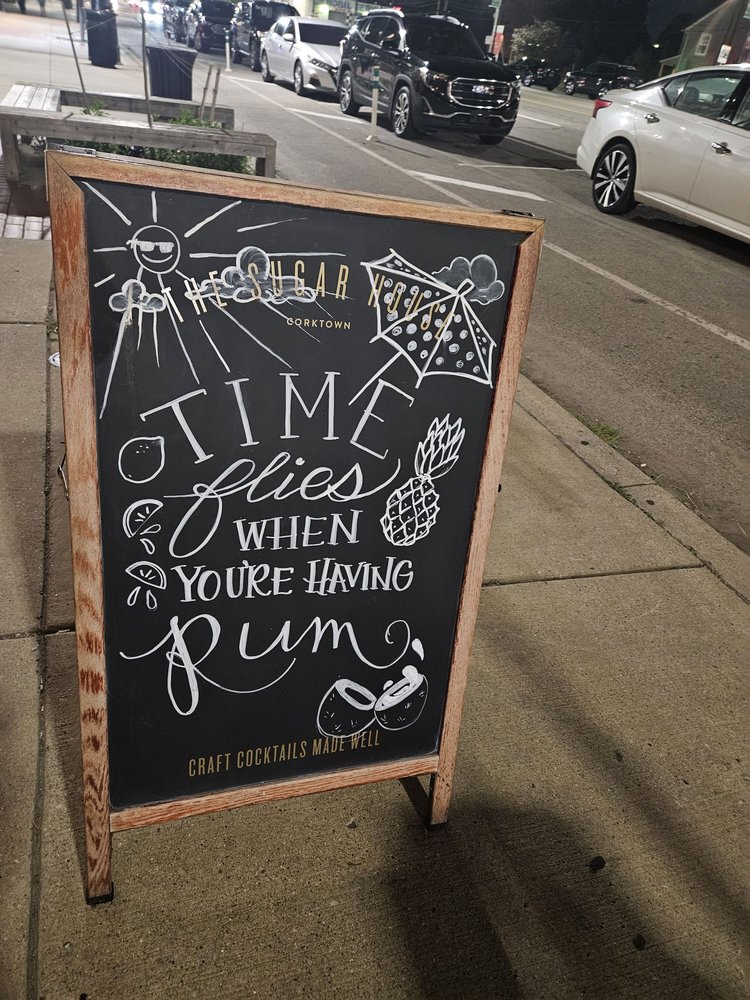 THE SUGAR HOUSE
CORKTOWN
TIME
flies
WHEN
YOU'RE HAVING
Rum
CRAFT COCKTAILS MADE WELL